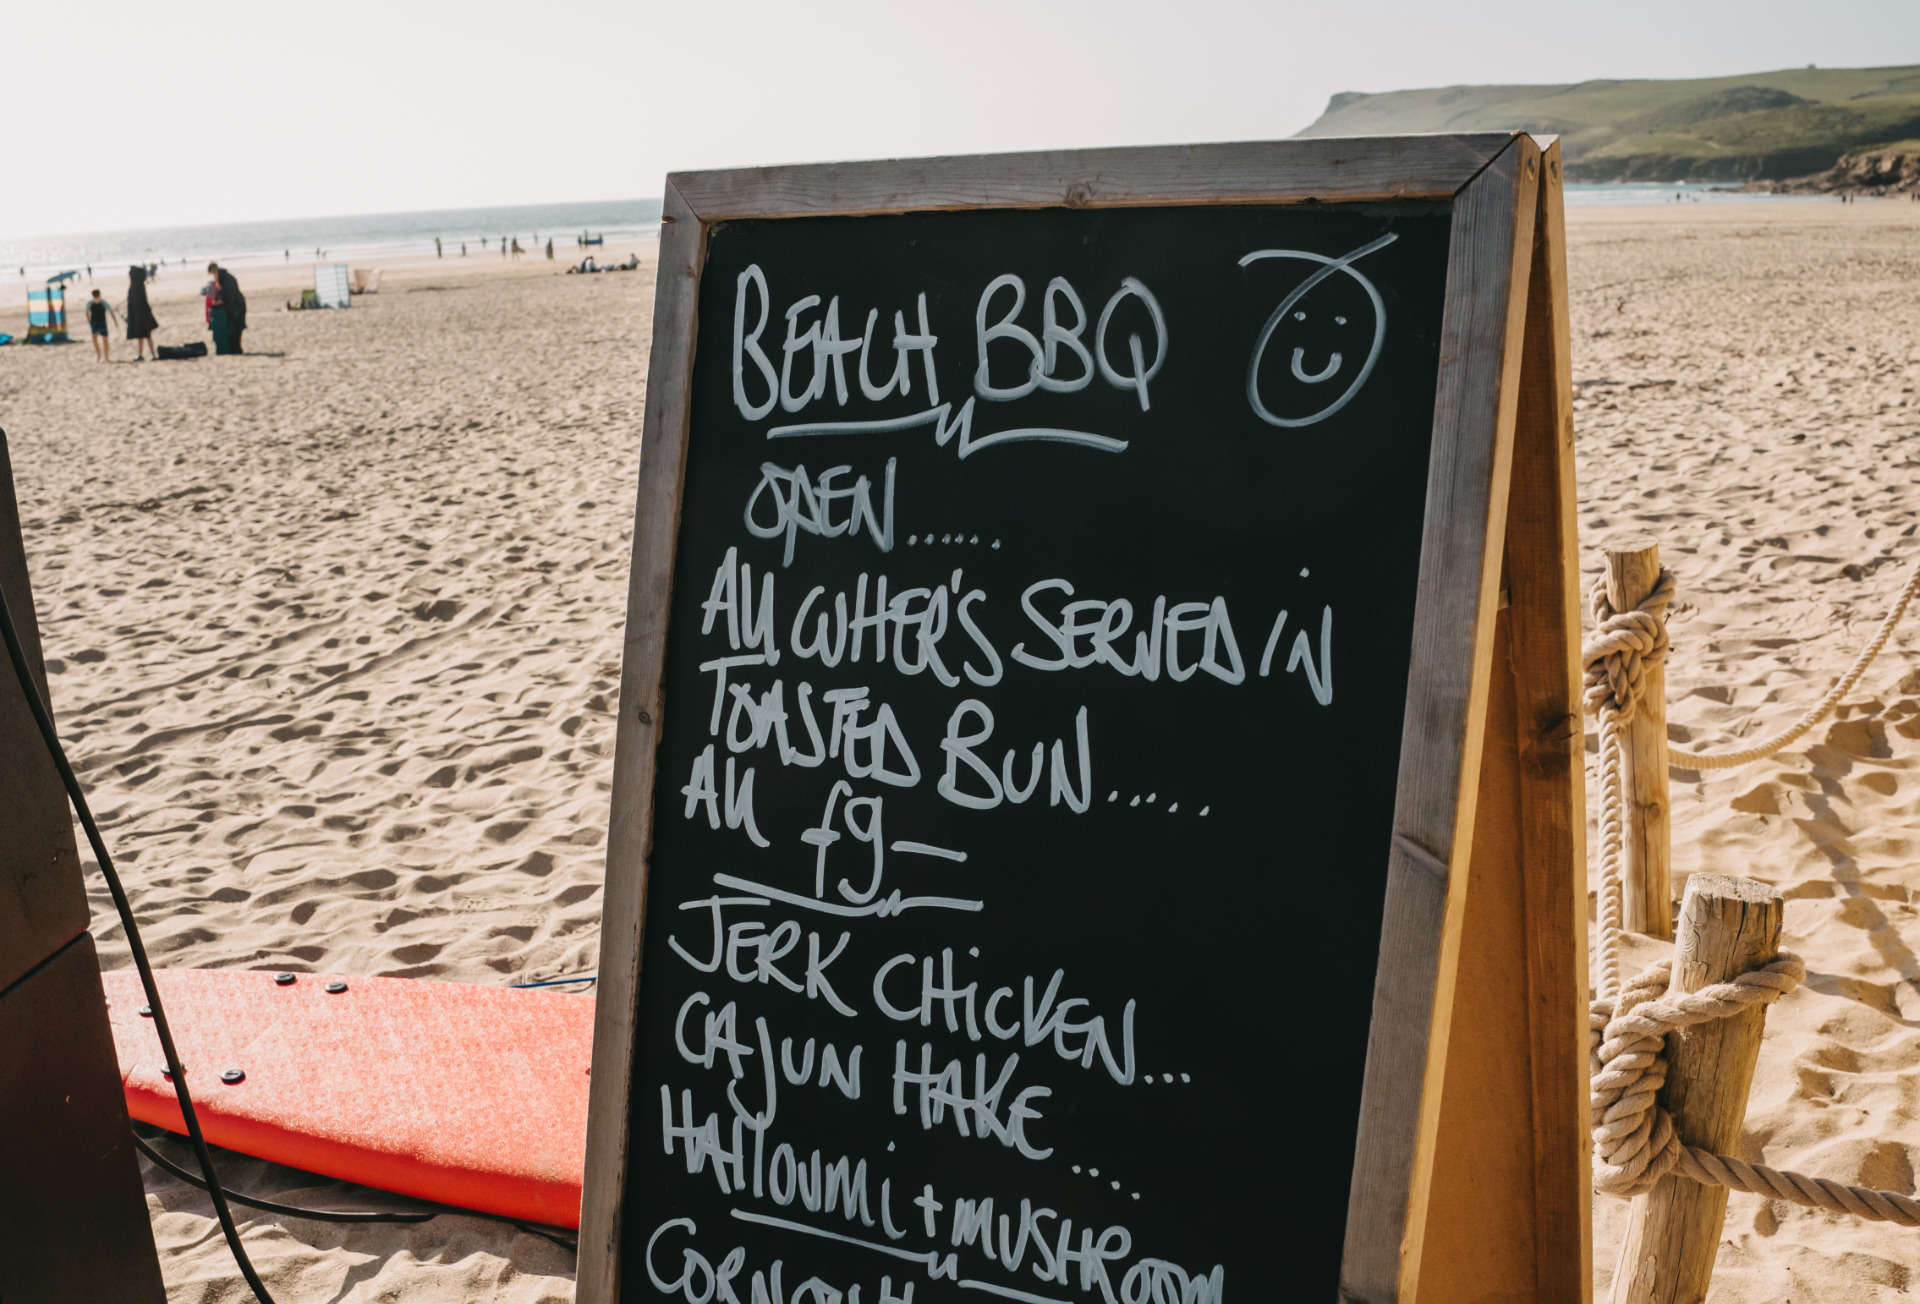 BEACH BBQ
OPEN......
All OTHER'S SERVED IN
TOASTED BUN.....
All £9—
JERK CHiCKEN...
CAJUN HAKE....
HAlloumi + MUSHROOM
CORNISH